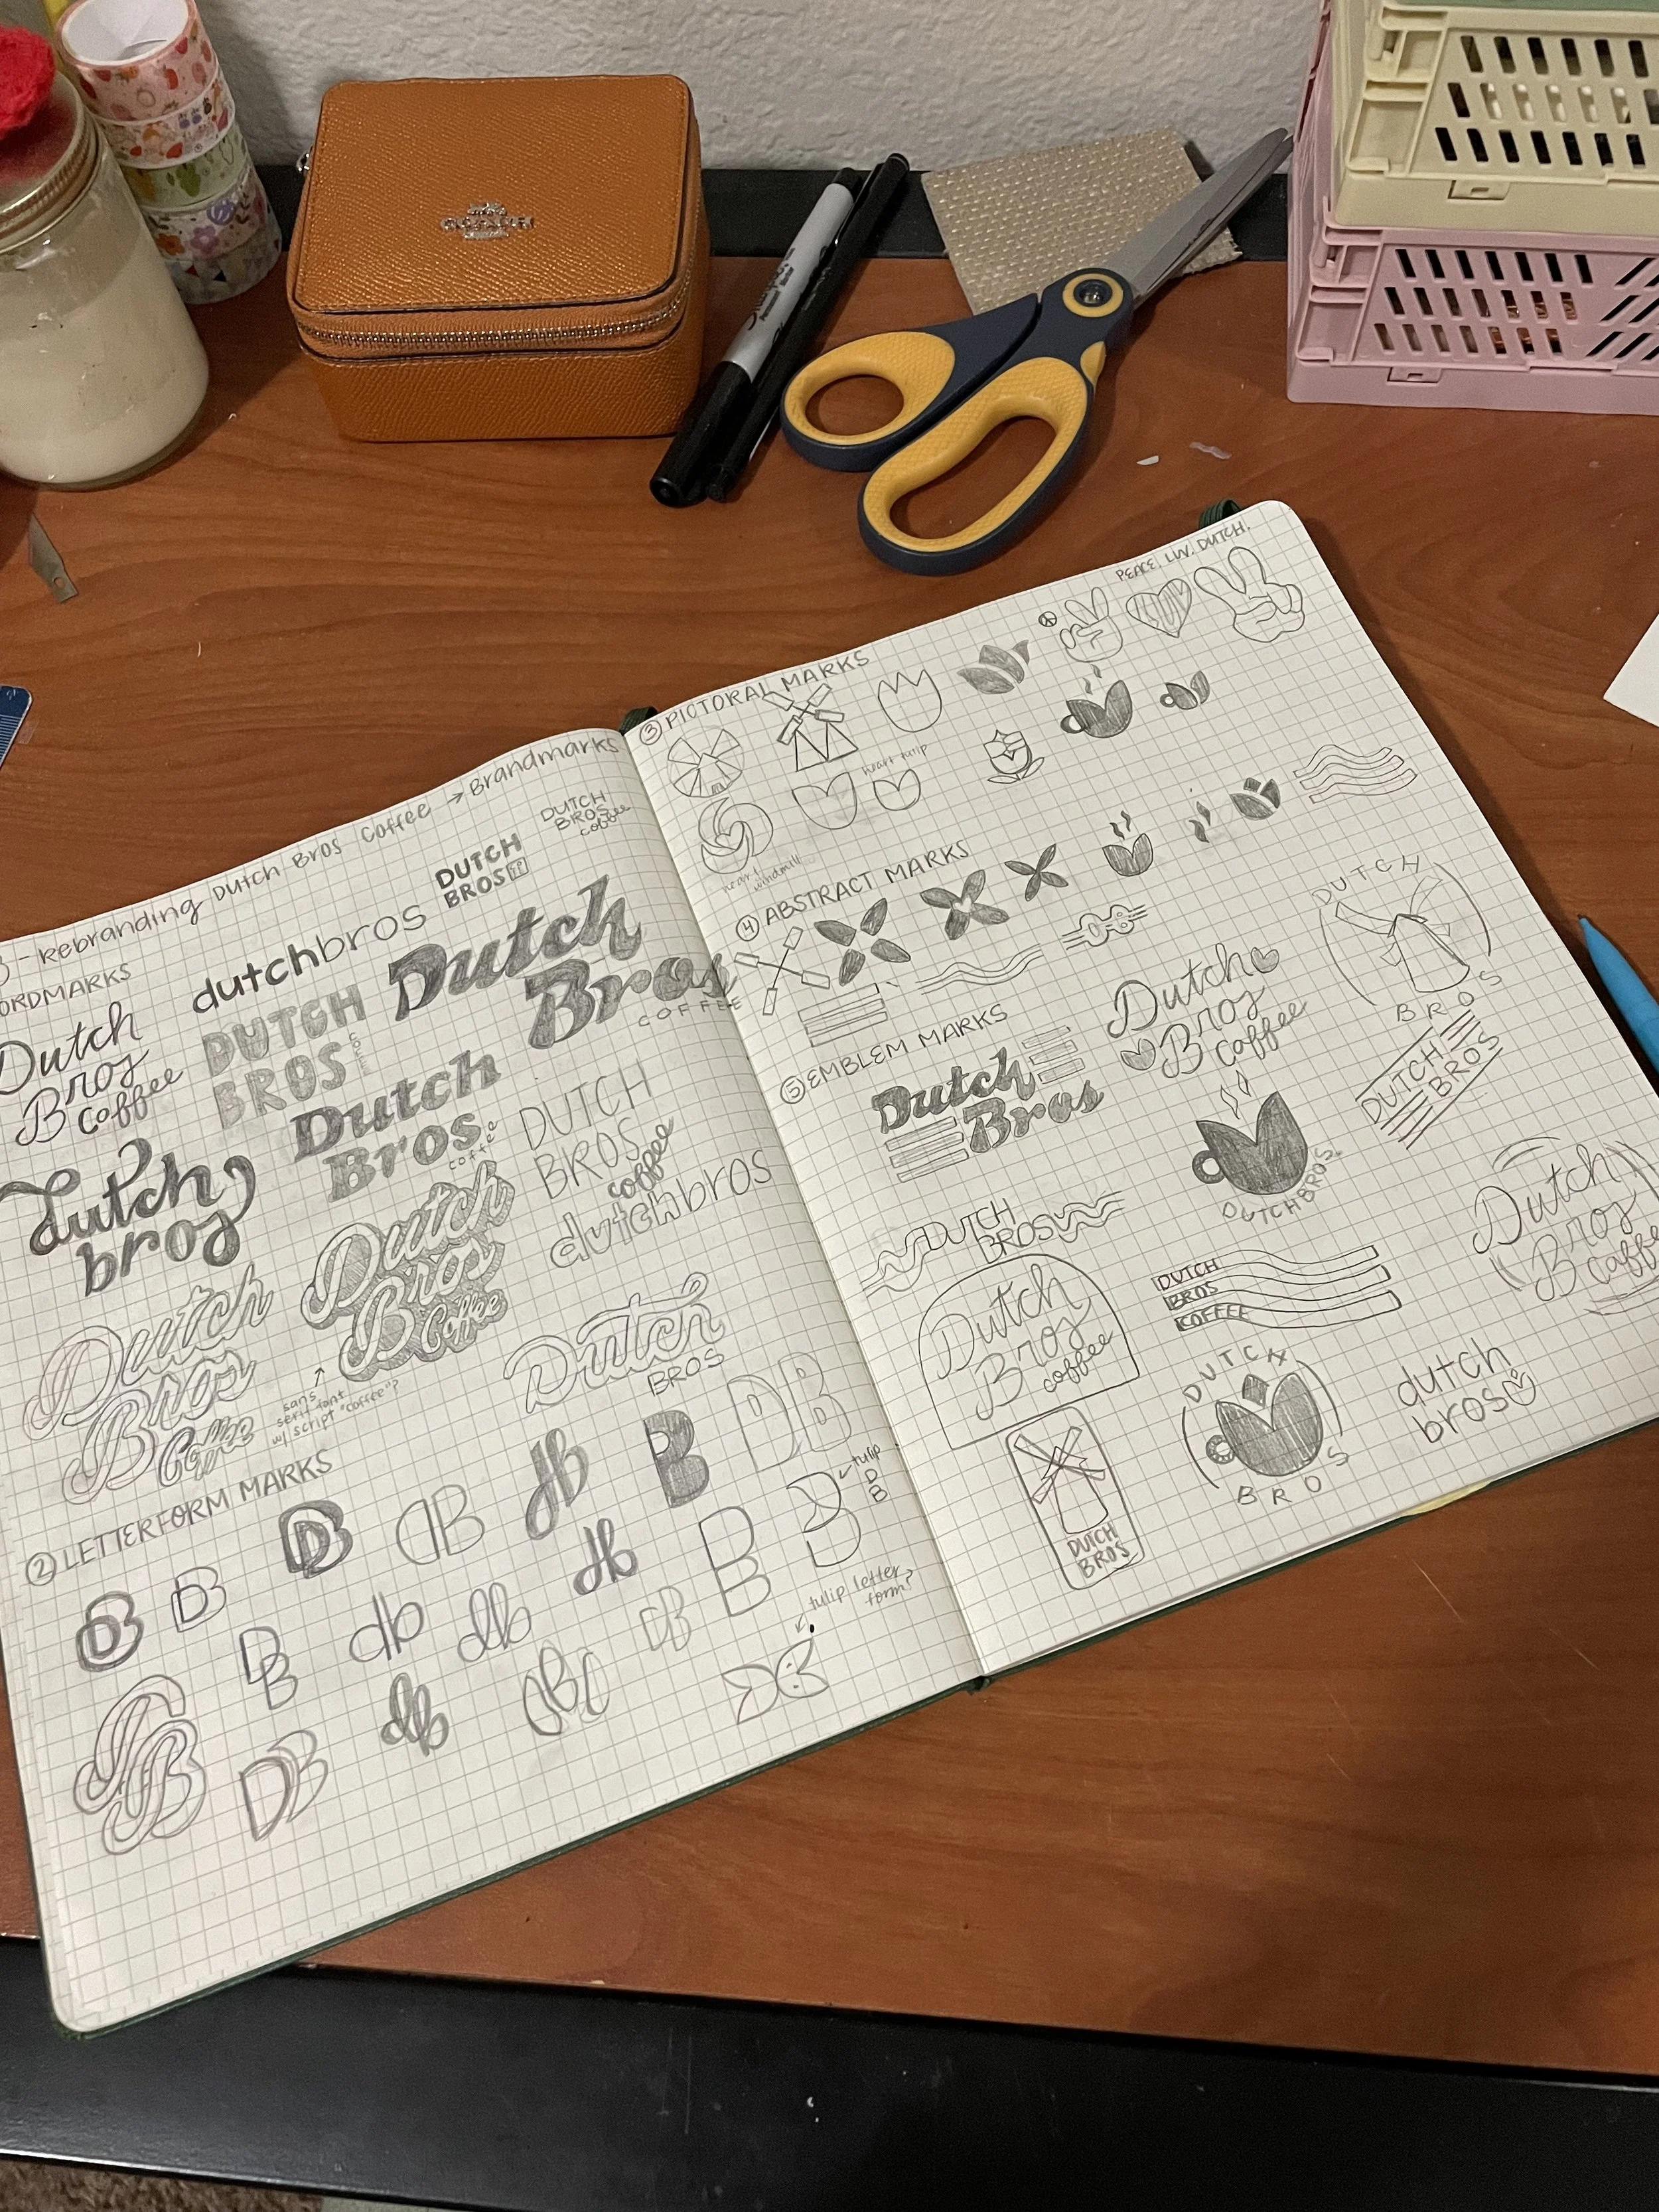 COACH
Sharpie
- Rebranding Dutch Bros Coffee → Brandmarks
WORDMARKS
Dutch
Bros
Coffee
dutchbros
DUTCH
BROS
DUTCH
BROS
coffee
DUTCH
BROS
COFFEE
Dutch
Bros
COFFEE
Dutch
Bros
coffee
DUTCH
BROS
coffee
dutchbros
dutch
bros
Dutch
Bros
Coffee
Dutch
Bros
Coffee
sans
serif font
w/ script "coffee"?
Dutch
BROS
② LETTERFORM MARKS
DB
DB
DB
DB
db
B
DB
tulip
D
B
DB
DB
db
db
db
DB
DB
tulip letter
form?
DB
DB
db
DB
DB
③ PICTORAL MARKS
PEACE. LUV. DUTCH.
LUV
heart tulip
heart
windmill
④ ABSTRACT MARKS
⑤ EMBLEM MARKS
Dutch
Bros
Dutch
Bros
Coffee
DUTCH
BROS
DUTCH
BROS
DUTCH BROS.
DUTCH
BROS
Dutch
Bros
coffee
DUTCH
BROS
COFFEE
Dutch
Bros
Coffee
DUTCH
BROS
DUTCH
BROS
dutch
bros